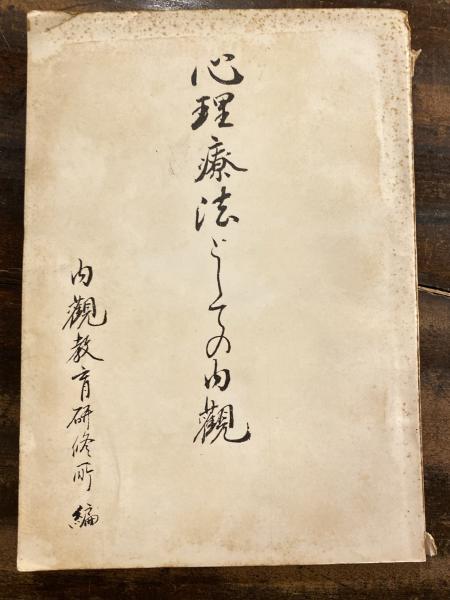 心理療法としての内觀
内觀教育研修所 編